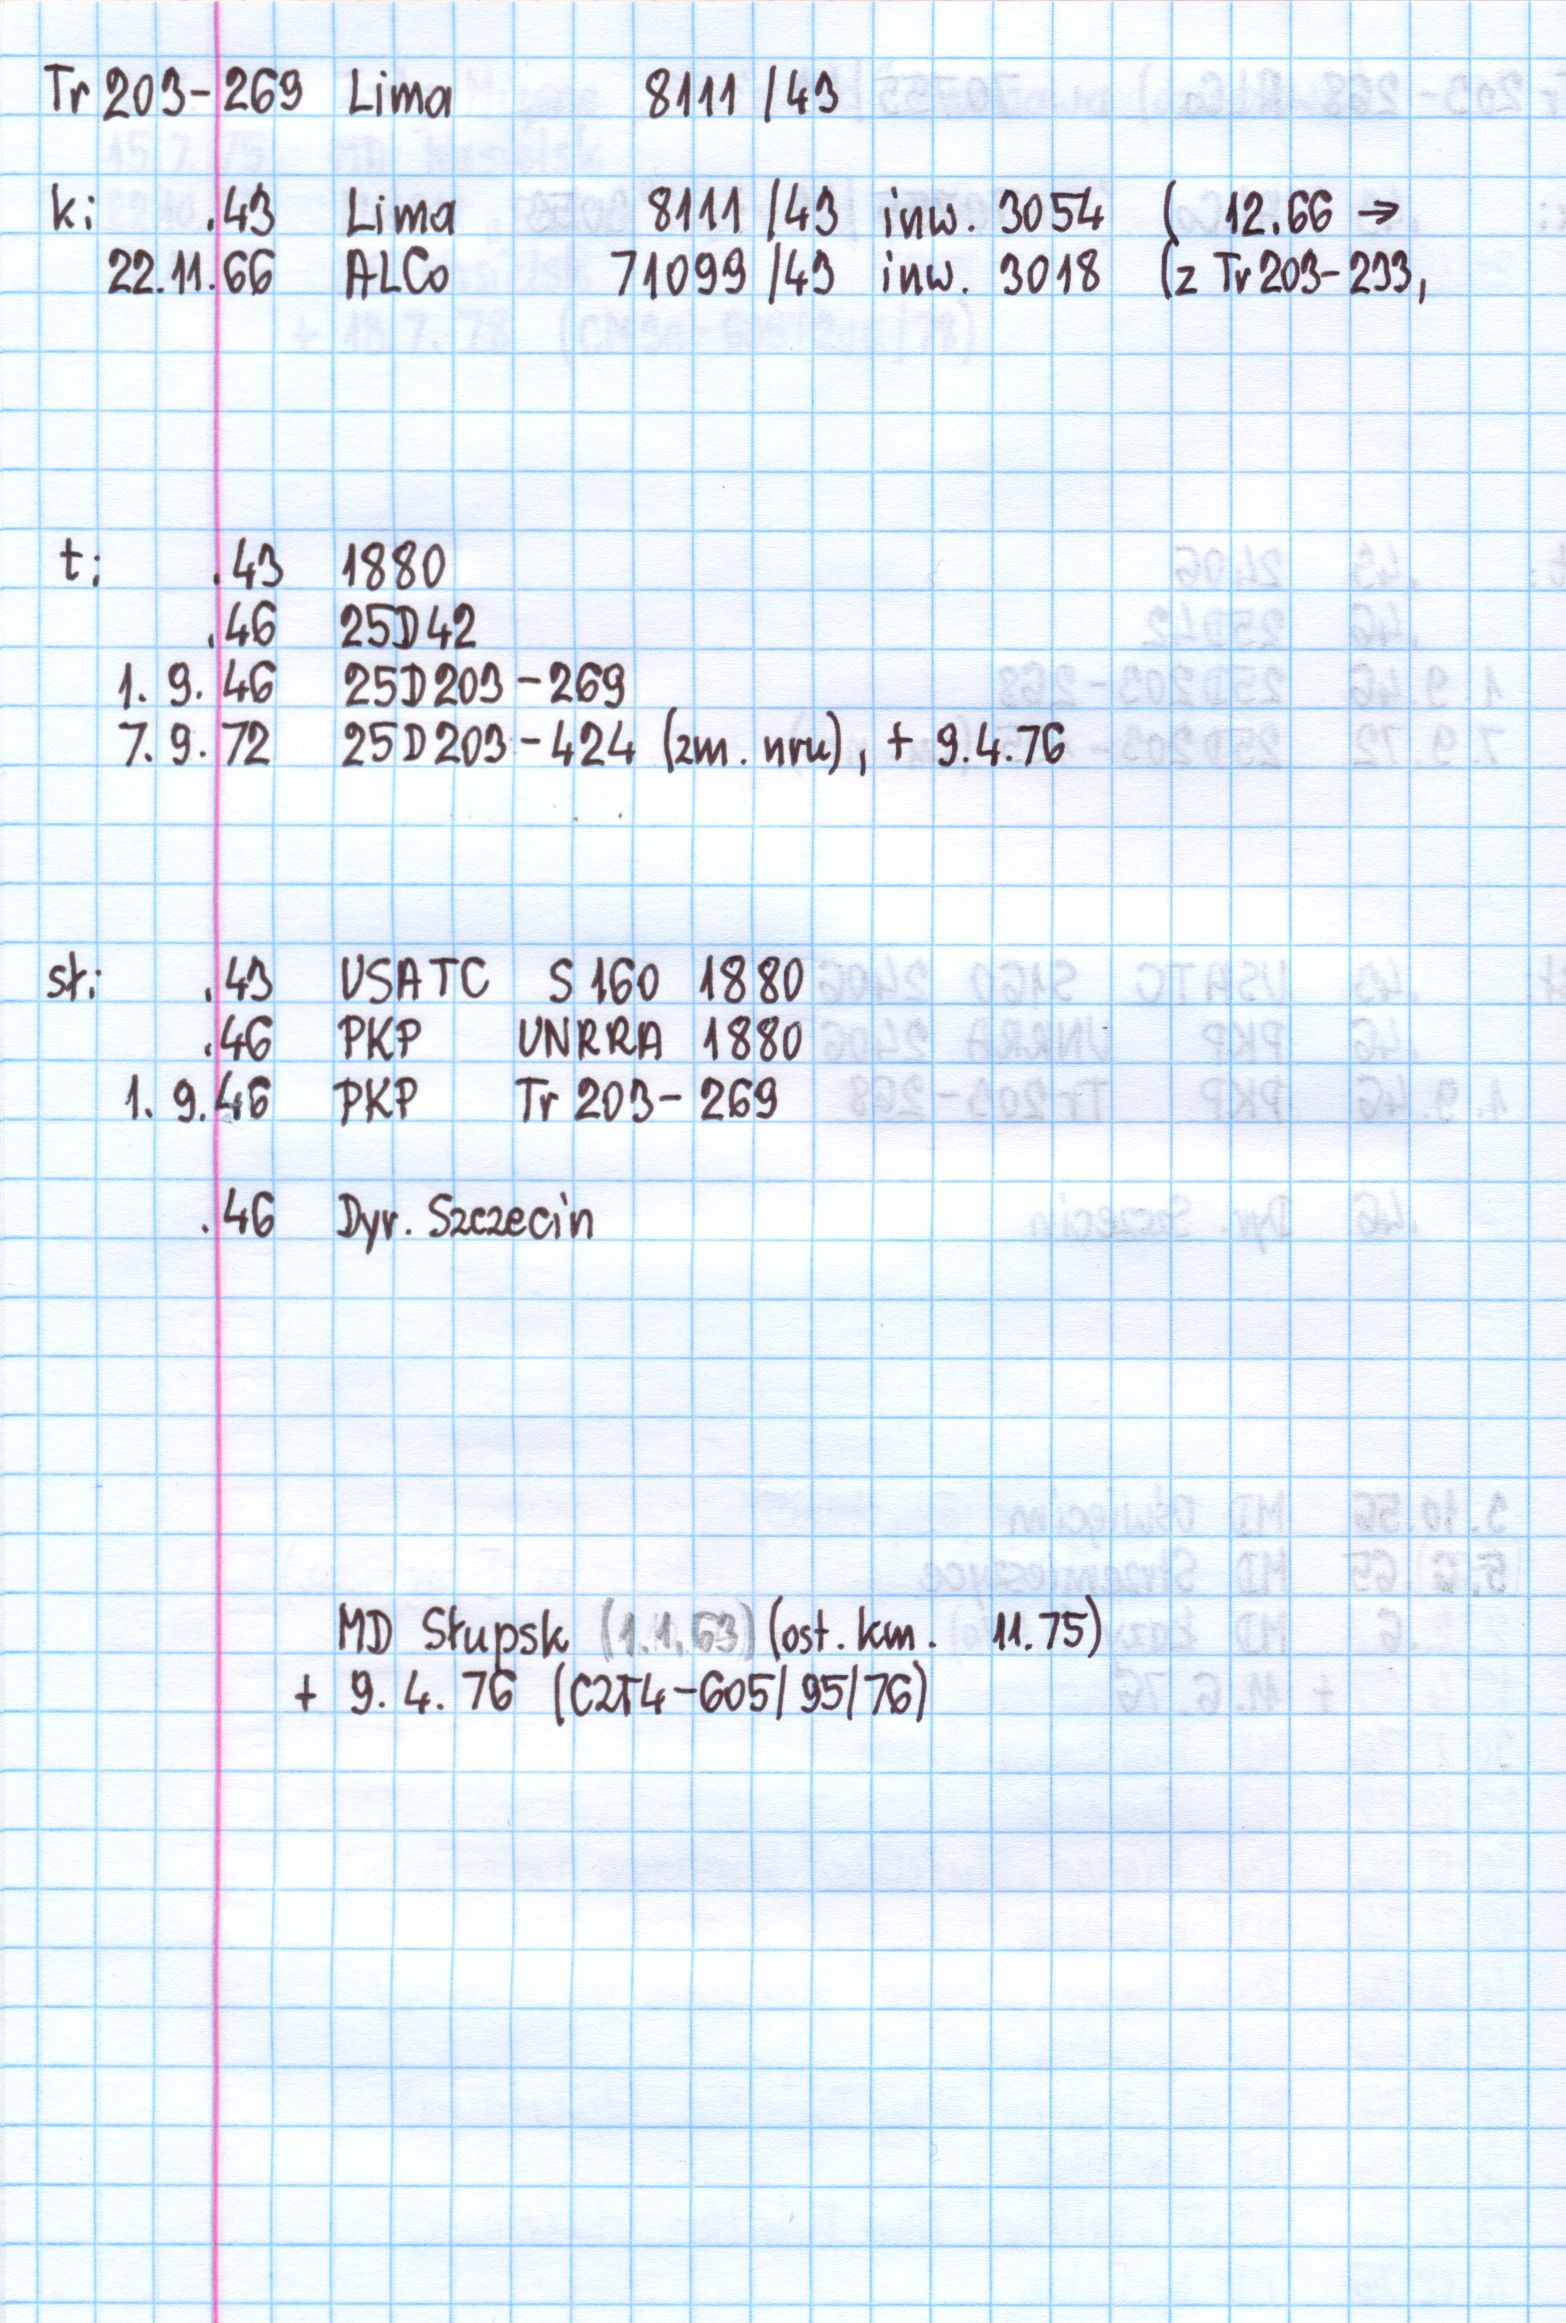 Tr 203-269 Lima 8111 /43
k: .43 Lima 8111 /43 inw. 3054 ( 12.66 →
22.11.66 ALCo 71099 /43 inw. 3018 (z Tr 203-233,
t: .43 1880
.46 25D42
1. 9. 46 25D203-269
7. 9. 72 25D203-424 (zm. nru), + 9.4.76
st: .43 USATC S 160 1880
.46 PKP UNRRA 1880
1. 9. 46 PKP Tr 203-269
.46 Dyr. Szczecin
MD Słupsk (1.1.63) (ost. km. 11.75)
+ 9. 4. 76 (C2T4-605/95/76)